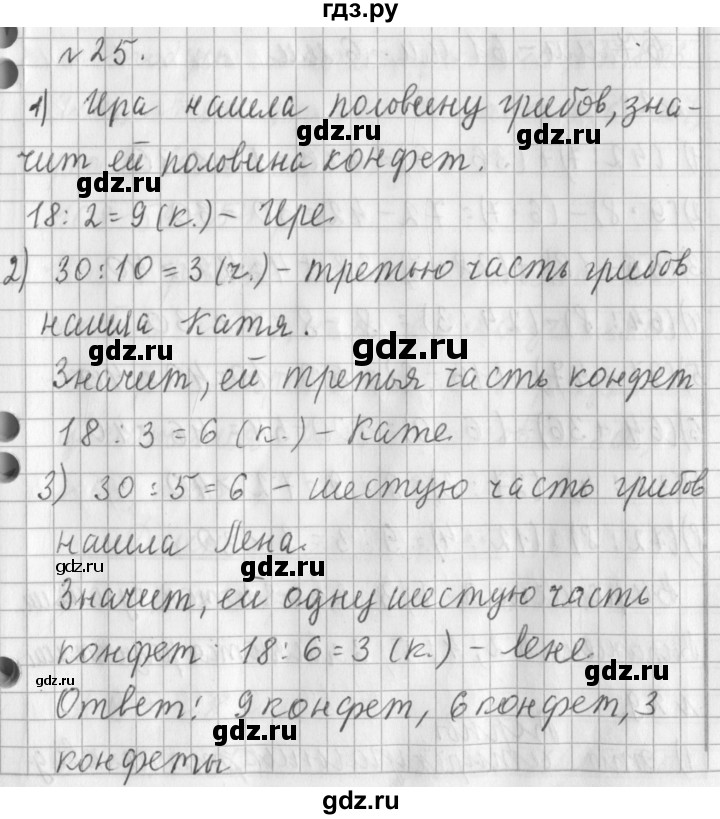 гдз.ру
№25.
1) Ира нашла половину грибов, зна-
gdz.ru
gdz.ru
чит ей половина конфет.
gdz.ru
18:2=9 (к.) – Ире.
gdz.ru
2) 30:10=3 (ч.) – третью часть грибов
нашла Катя.
gdz.ru
gdz.ru
Значит, ей третья часть конфет
18:3=6 (к.) – Кате.
gdz.ru
3) 30:5=6 – шестую часть грибов
нашла Лена.
gdz.ru
gdz.ru
Значит, ей одну шестую часть
конфет 18:6=3 (к.) – Лене.
gdz.ru
gdz.ru
Ответ: 9 конфет, 6 конфет, 3
gdz.ru
конфеты
gdz.ru